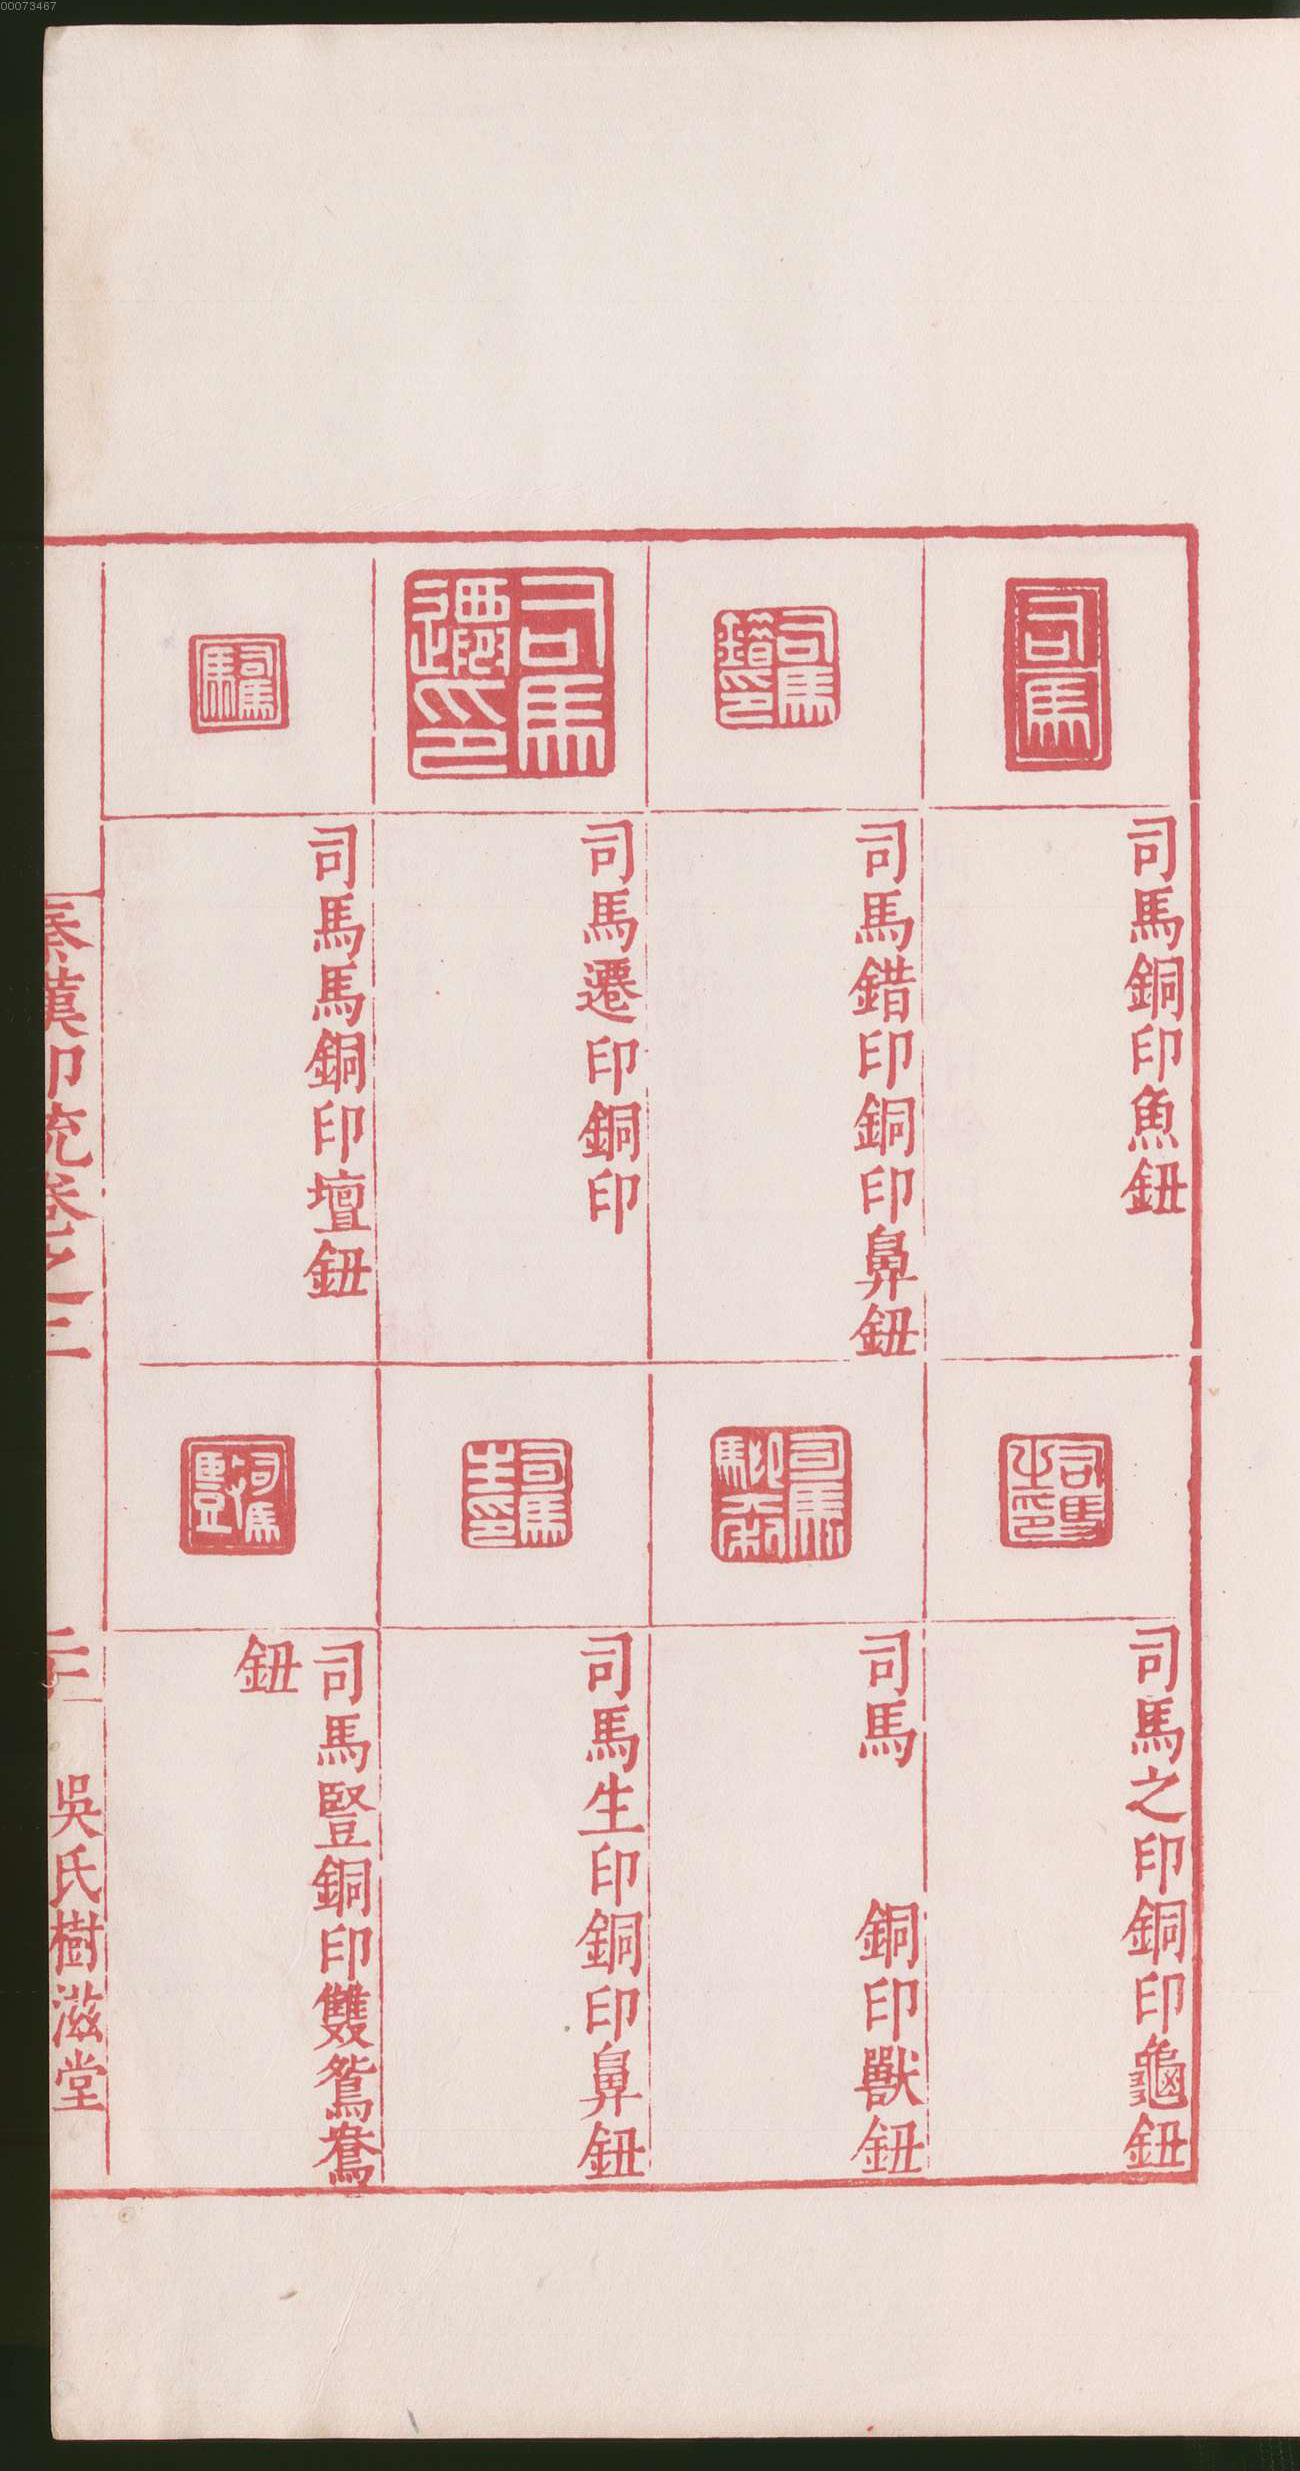 00073467
司馬
司馬銅印魚鈕
司馬錯印
司馬錯印銅印鼻鈕
司馬遷印
司馬遷印銅印
司馬馬
司馬馬銅印壇鈕
司馬之印
司馬之印銅印龜鈕
司馬
司馬　　銅印獸鈕
司馬生印
司馬生印銅印鼻鈕
司馬豎
司馬豎銅印雙鴛鴦
鈕
秦漢印統卷之三
吳氏樹滋堂